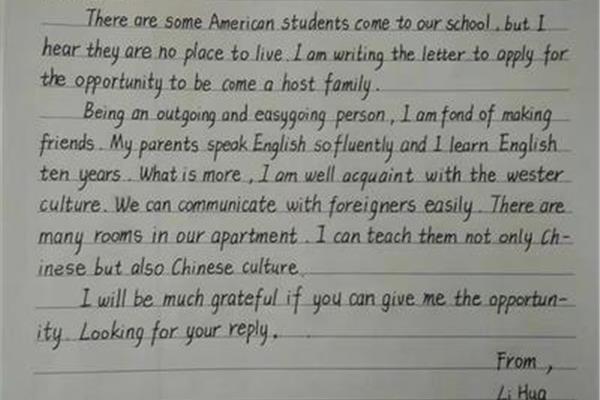 There are some American students come to our school, but I
hear they are no place to live. I am writing the letter to apply for
the opportunity to be come a host family.
Being an outgoing and easygoing person, I am fond of making
friends. My parents speak English so fluently and I learn English
ten years. What is more, I am well acquaint with the wester
culture. We can communicate with foreigners easily. There are
many rooms in our apartment. I can teach them not only Ch-
inese but also Chinese culture.
I will be much grateful if you can give me the opportun-
ity. Looking for your reply.
From,
Li Hua